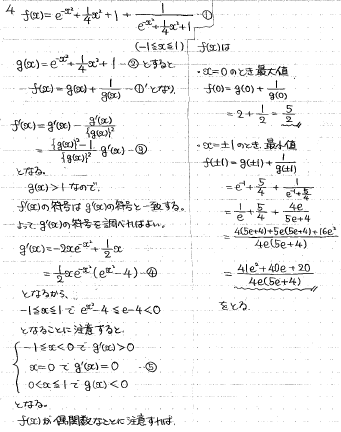 4 f(x)=e^{-x²}+\frac{1}{4}x²+1+\frac{1}{e^{-x²}+\frac{1}{4}x²+1} -①
(-1≦x≦1)
g(x)=e^{-x²}+\frac{1}{4}x²+1 -② とすると
f(x)=g(x)+\frac{1}{g(x)} -①' となり
f'(x)=g'(x)-\frac{g'(x)}{\{g(x)\}²}
=\frac{\{g(x)\}²-1}{\{g(x)\}²} g'(x) -③
となる。
g(x)>1 なので、
f'(x)の符号は g'(x)の符号と一致する。
よって g'(x)の符号を調べればよい。
g'(x)=-2xe^{-x²}+\frac{1}{2}x
=\frac{1}{2}xe^{-x²}(e^{x²}-4) -④
となるから、
-1≦x≦1で e^{x²}-4≦e-4<0
となることに注意すると、
-1≦x<0 で g'(x)>0
x=0 で g'(x)=0 -⑤
0<x≦1 で g'(x)<0
となる。
f(x)が偶関数なことに注意すれば
f(x)は
・x=0のとき最大値
f(0)=g(0)+\frac{1}{g(0)}
=2+\frac{1}{2}=\frac{5}{2}
・x=±1のとき、最小値
f(±1)=g(±1)+\frac{1}{g(±1)}
=e^{-1}+\frac{5}{4}+\frac{1}{e^{-1}+\frac{5}{4}}
=\frac{1}{e}+\frac{5}{4}+\frac{4e}{5e+4}
=\frac{4(5e+4)+5e(5e+4)+16e²}{4e(5e+4)}
=\frac{41e²+40e+20}{4e(5e+4)}
をとる。